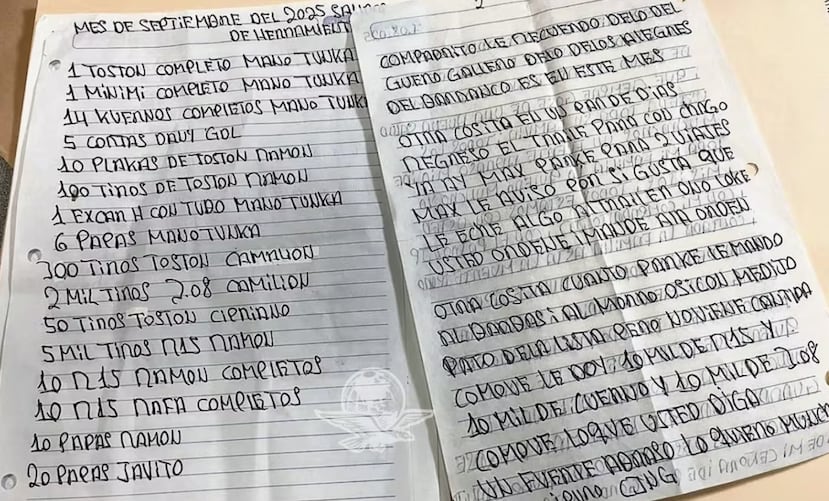 MES DE SEPTIEMBRE DEL 2025
DE HERRAMIENT
1 TOSTON COMPLETO MANO TUNKA
1 MINIMI COMPLETO MANO TUNKA
14 KUERNOS COMPLETOS MANO TUNK
5 CORTAS DAVY GOL
10 PLAKAS DE TOSTON RAMON
100 TIROS DE TOSTON RAMON
1 EXCAR H CON TUDO MANO TUNKA
6 PAPAS MANO TUNKA
300 TIROS TOSTON CAMALION
2 MIL TIROS 7.08 CAMILION
50 TIROS TOSTON CIPRIANO
5 MIL TIROS R15 RAMON
10 R15 RAMON COMPLETOS
10 R15 RAFA COMPLETOS
10 PAPAS RAMON
20 PAPAS JAVITO
2
COMPADRITO LE RECUERDO DELO DEL
GUERO GALLERO DELO DELOS AREGNES
DEL BARRANCO ES EN ESTE MES
OTRA COSITA EN UN PAR DE DIAS
REGRESO EL TRAILE PARA CON CHAGO
YA AY MAX PARKE PARA 2 VIAJES
MAX LE AVISO POR SI GUSTA QUE
LE ECHE ALGO A TRAILER ORO LOKE
USTED ORDENE I MANDE A LA ORDEN
OTRA COSITA CUANTO PARKE LE MANDO
AL BARBAS i AL MORRO OSICON ME DIJO
PATO DELA LISTA PERO NO VIENE CANTIDA
COMO VE LE DOY 10 MIL DE R15 Y
10 MIL DE CUERNO Y 10 MIL DE 308
COMO VE LO QUE USTED DIGA
UN FUERTE ABRASO LO QUIERO MUCH
CJNG